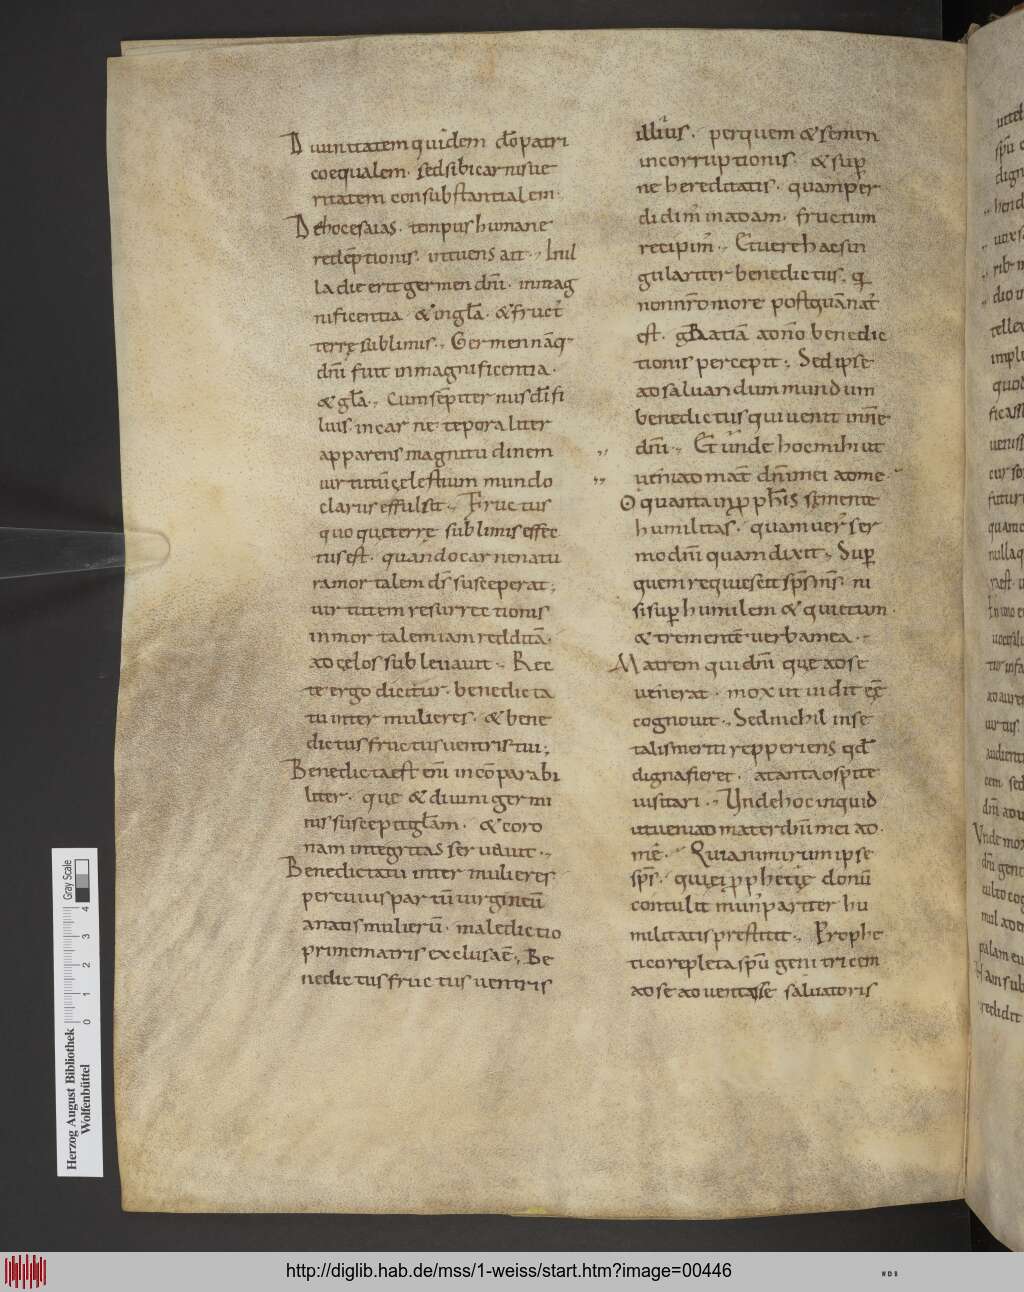 Diuinitatem quidem dõ patri
coequalem · sed sibi carnis ue
ritatem consubstantialem ·
De hoc esaias · tempus humane
redẽptionis · intuens ait ·, In il
la die erit germen dñi · in mag
nificentia · & in gła · & fruct'
terrę sublimis ·, Germen nãq·
dñi fuit in magnificentia ·
& gła ·, Cum sẽpiter nus dĩ fi
lius · in carne tẽporaliter
apparens magnitudinem
uirtutũ cęlestium mundo
clarus effulsit ·, Fructus
quoque terrę sublimis effec
tus est · quando carne natu
ra mortalem dś susceperat ;
uirtutem resurrectionis
in mortalem iam redditã ·
ad cęlos subleuauit ·, Rec
te ergo dicitur · benedicta
tu inter mulieres · & bene
dictus fructus uentris tui ;
Benedicta est enĩ incõparabi
liter · que & diuini germi
nis suscepit głam · & coro
nam integritas seruauit ·,
Benedicta tu inter mulieres
per cuius partũ uirgineũ
a natis mulierũ · maledictio
prime matris exclusa ẽ ·, Be
nedictus fructus uentris
illius · per quem & semen
incorruptionis · & sup
ne hereditatis · quam per
didim̃ in adam · fructum
recipim̃ ·, Et uere hac sin
gulariter benedictus · q
non nr̃o more postquã nat'
est · gratiã a dño benedic
tionis percepit ·, Sed ipse
ad saluandum mundum
benedictus qui uenit in nñe
dñi ·, Et unde hoc mihi ut
ueniad mat̃ dñi mei ad me ·
O quanta in pphetis s mente
humilitas · quam uer' ser
mo dñi quam dixit ·, Sup
quem requiescit sp̃s m̃s · ni
si sup humilem & quietum ·
& trementẽ uerba mea ·,
Matrem qui dñi que ad se
uenerat · mox ut uidit eẽ
cognouit ·, Sed nichil in se
talis meriti repperiens qd
digna fieret · a tanta ospite
uisitari ·, Unde hoc inquid
ut ueniad mater dñi mei ad ·
mẽ · Quia nimirum ipse
sp̃s · qui ei pphetię donũ
contulit mun' pariter hu
militatis prestitit ·, Prophe
tico repleta sp̃u genitricem
ad se aduentasse saluatoris
Herzog August Bibliothek
Wolfenbüttel
0 1 2 3 4
Gray Scale
http://diglib.hab.de/mss/1-weiss/start.htm?image=00446